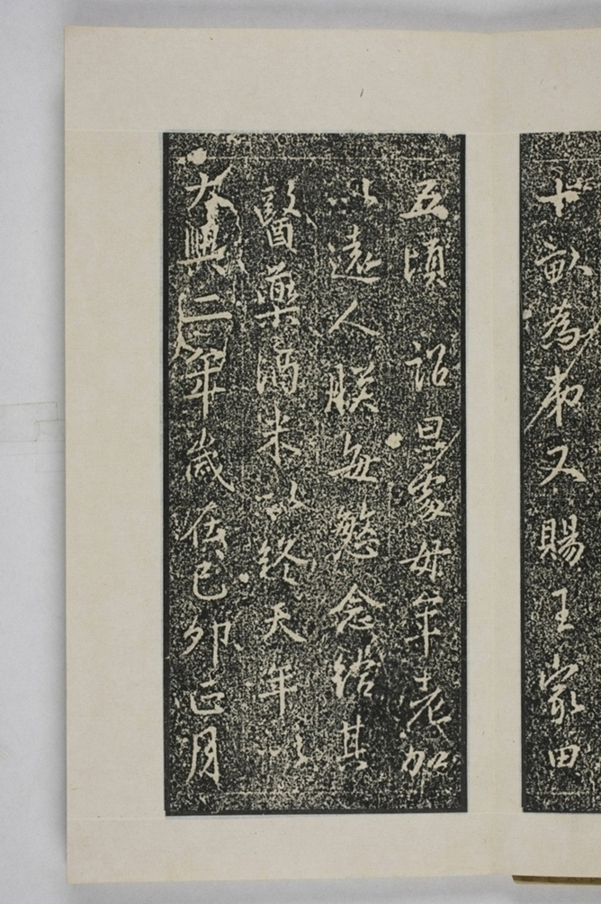 十畝為苐又賜王家田
五頃 詔曰處母年老加
以遠人朕每愍念給其
醫藥酒米以終天年以
大興二年歲在己卯正月